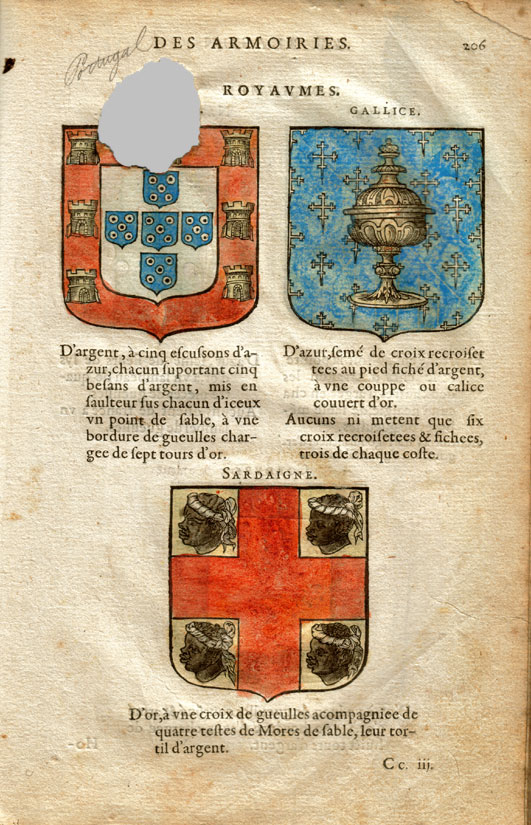 Portugal
DES ARMOIRIES.
206
ROYAVMES.
GALLICE.
D'argent, à cinq escussons d'a-
zur, chacun suportant cinq
besans d'argent, mis en
saulteur sus chacun d'iceux
vn point de sable, à vne
bordure de gueulles char-
gee de sept tours d'or.
D'azur, semé de croix recroiset
tees au pied fiché d'argent,
à vne couppe ou calice
couuert d'or.
Aucuns ni metent que six
croix recroisetees & fichees,
trois de chaque coste.
SARDAIGNE.
D'or, à vne croix de gueulles acompagniee de
quatre testes de Mores de sable, leur tor-
til d'argent.
C c. iij.